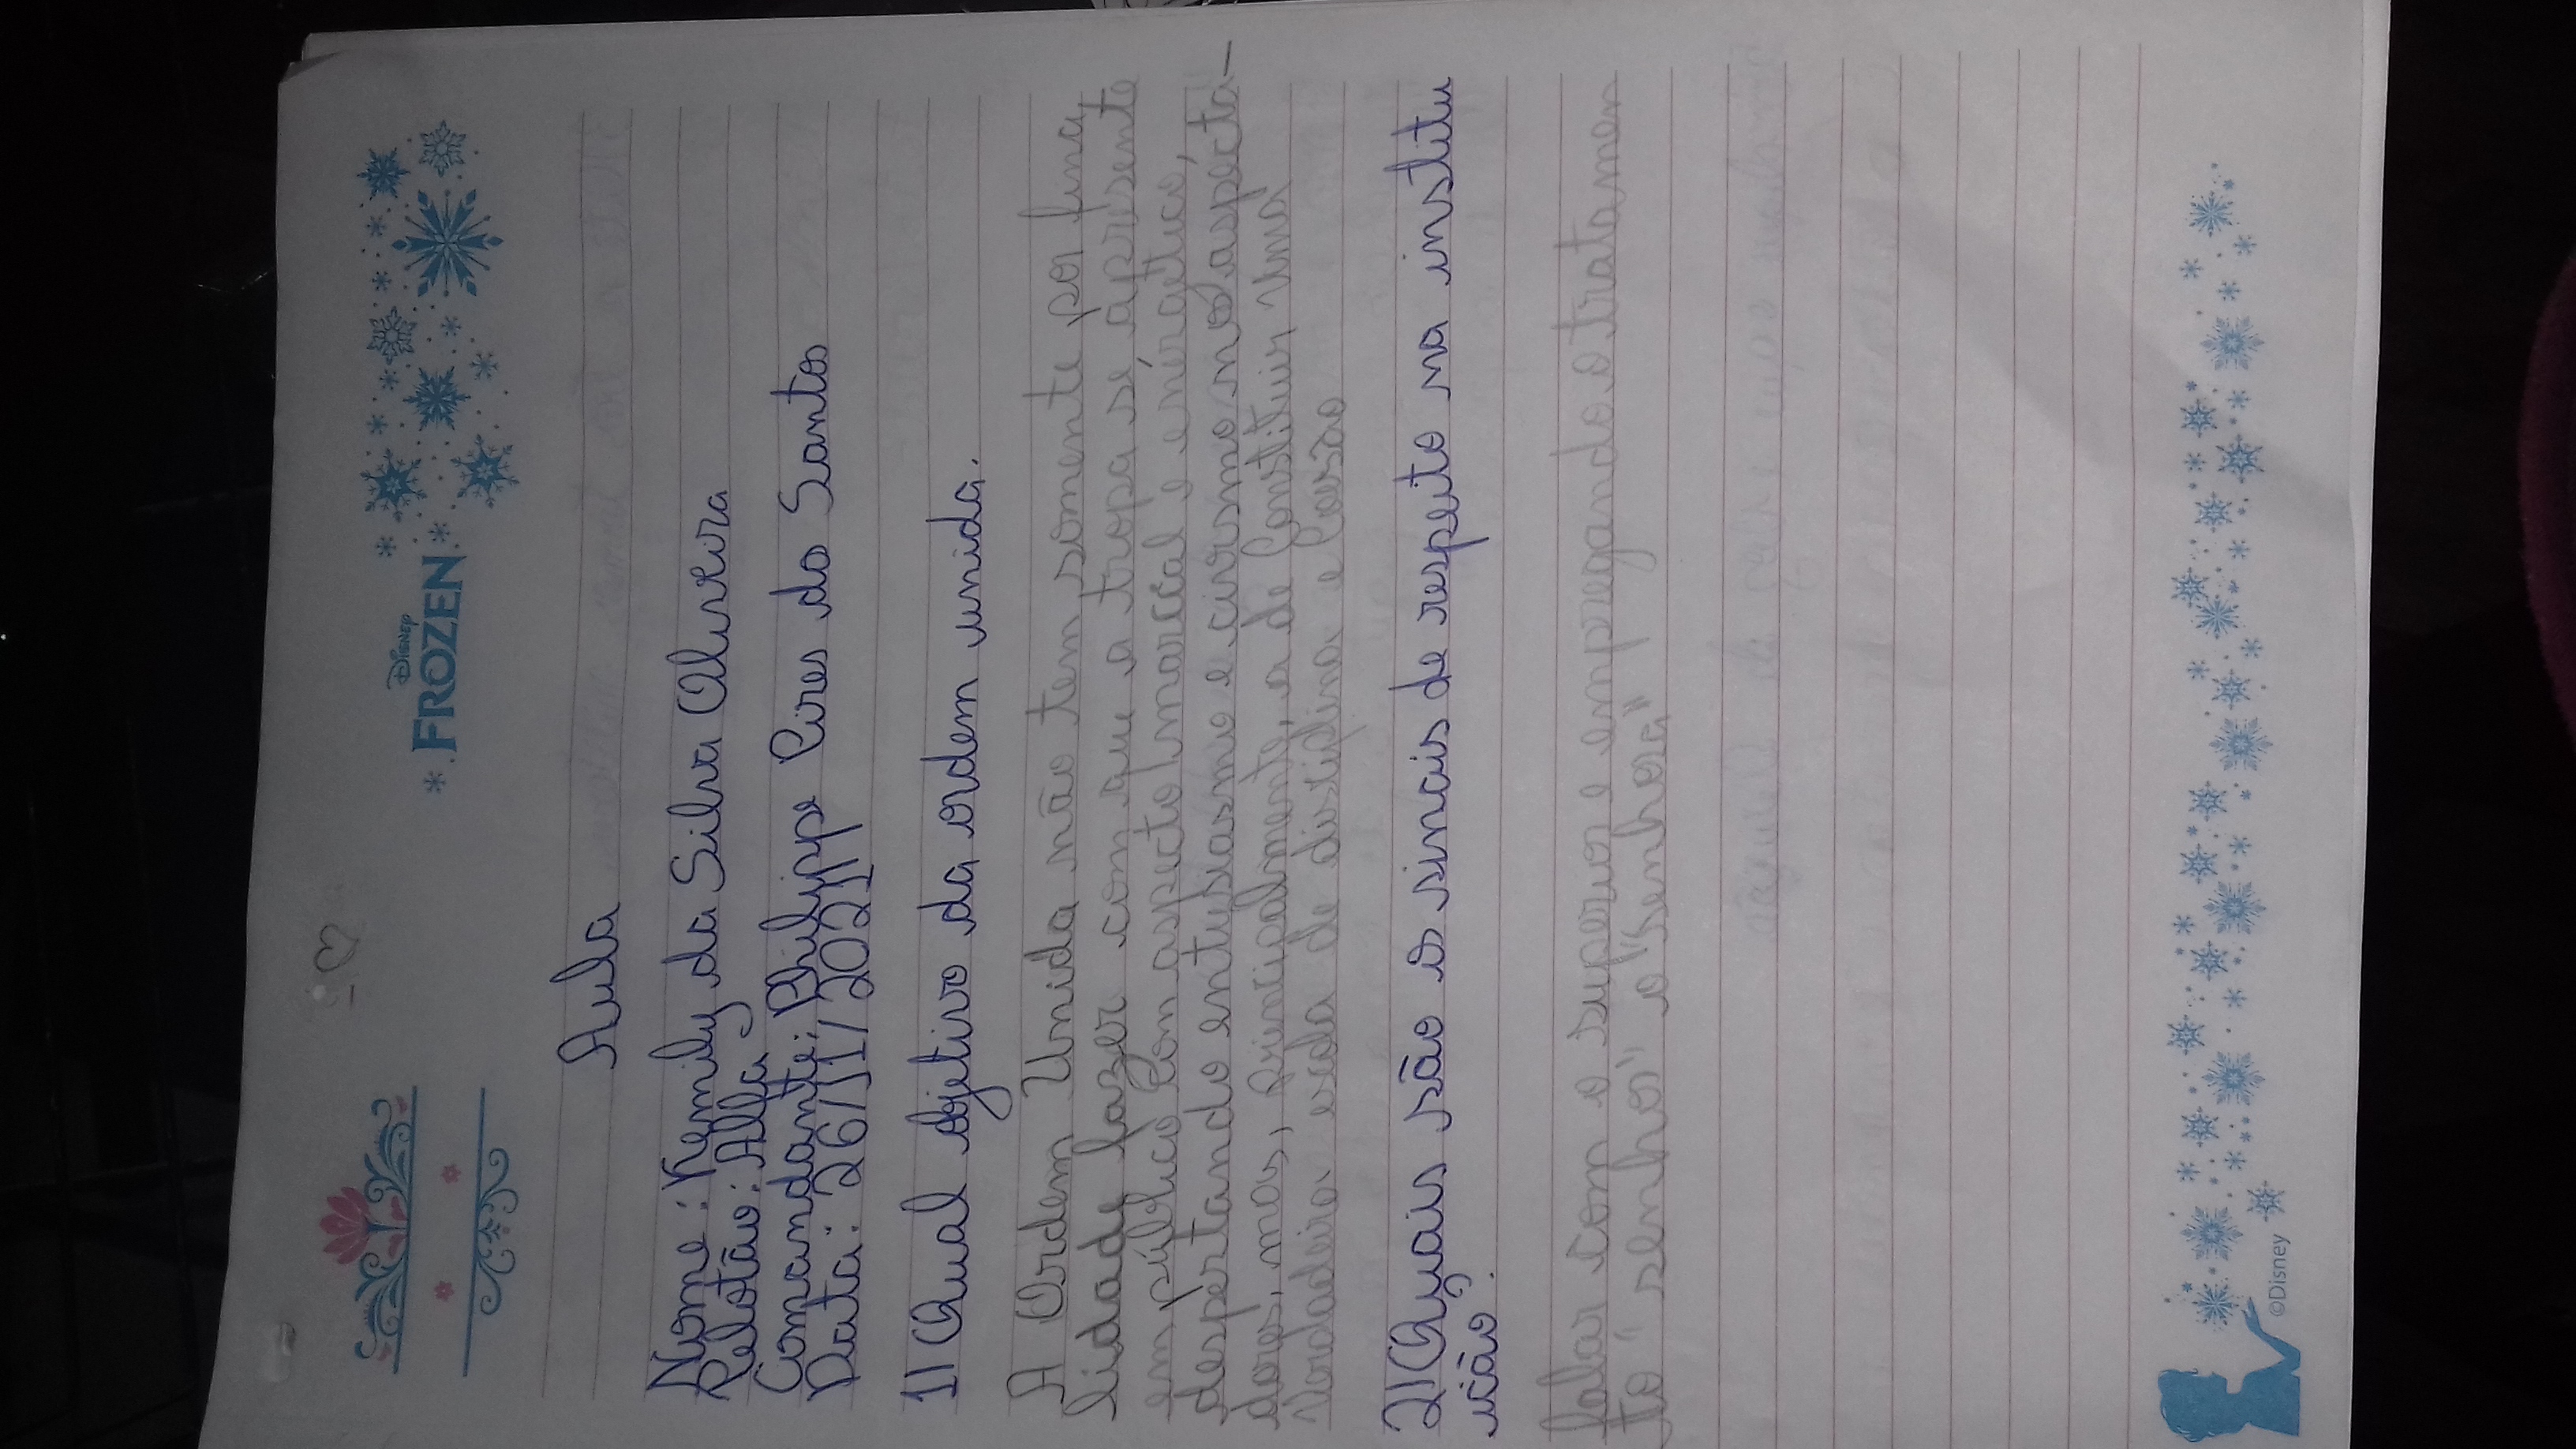 DISNEY
FROZEN
Aula
Nome: Kemily da Silva Oliveira
Pelotão: Alfa
Comandante: Philippe Pires do Santos
Data: 26/11/2021
1) Qual objetivo da ordem unida.
A Ordem Unida não tem somente por fina
lidade fazer com que a tropa se apresente
em público com aspecto marcial e enérgetico,
despertando entusiasmo e civismo nos aspecta-
dores, mas, principalmente, a de Constituir uma
Verdadeira escola de disciplina e Coesão
2) Quais são os sinais de respeito na institu
ição?
falar com o superior e empregando o tratamen
to "senhor" o "senhora"
©Disney